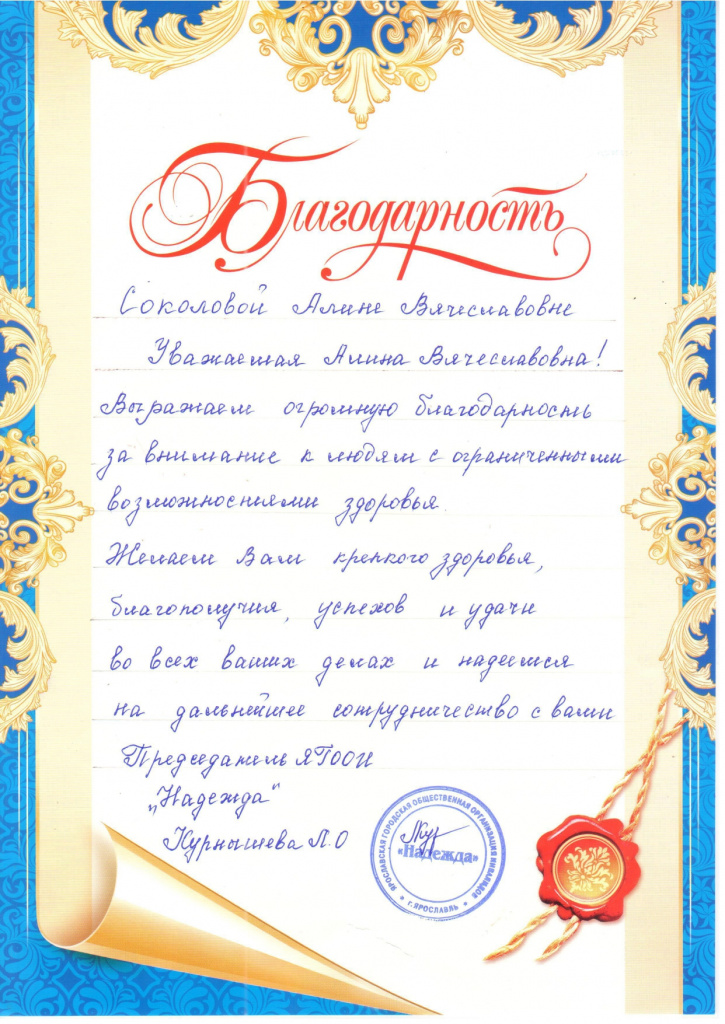 Благодарность
Соколовой Алине Вячеславовне
Уважаемая Алина Вячеславовна!
Выражаем огромную благодарность
за внимание к людям с ограниченными
возможностями здоровья.
Желаем Вам крепкого здоровья,
благополучия, успехов и удачи
во всех ваших делах и надеемся
на дальнейшее сотрудничество с вами
Председатель ЯГООИ
„Надежда"
Курнышева Л.О
ЯРОСЛАВСКАЯ ГОРОДСКАЯ ОБЩЕСТВЕННАЯ ОРГАНИЗАЦИЯ ИНВАЛИДОВ
«Надежда»
г. ЯРОСЛАВЛЬ